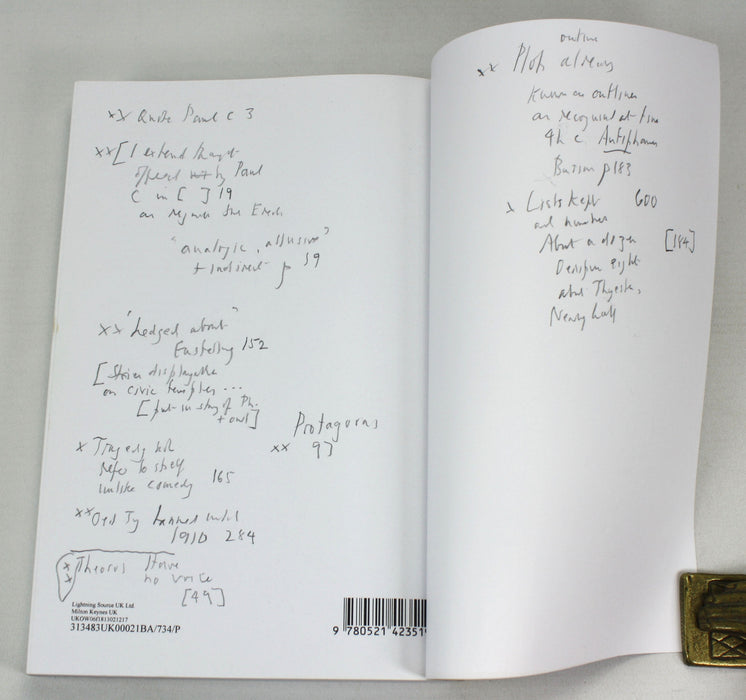 xx Quote Paul C 3
xx [ I extend thought
offered by Paul
C in [ ] 19
"analogic, allusive"
+ indirect p 19
xx "hedged about"
Easterling 152
[ Stories displayed
on civic temples ...
[ put in story of Ph.
+ owl ]
Protagoras
xx 97
x Tragedy
refer to itself
unlike comedy 165
xx Oed Ty banned until
1910 284
xx Theorus
no voice
[49]
Lightning Source UK Ltd.
Milton Keynes UK
UKOW06f1813021217
313483UK00021BA/734/P
9 780521 42351
outline
xx Plots always
known in outline
4th c Antiphanes
Burian p 183
x Lists kept 600
and number
About a dozen [184]
Oedipus eight
about Thyestes,
Nearly half